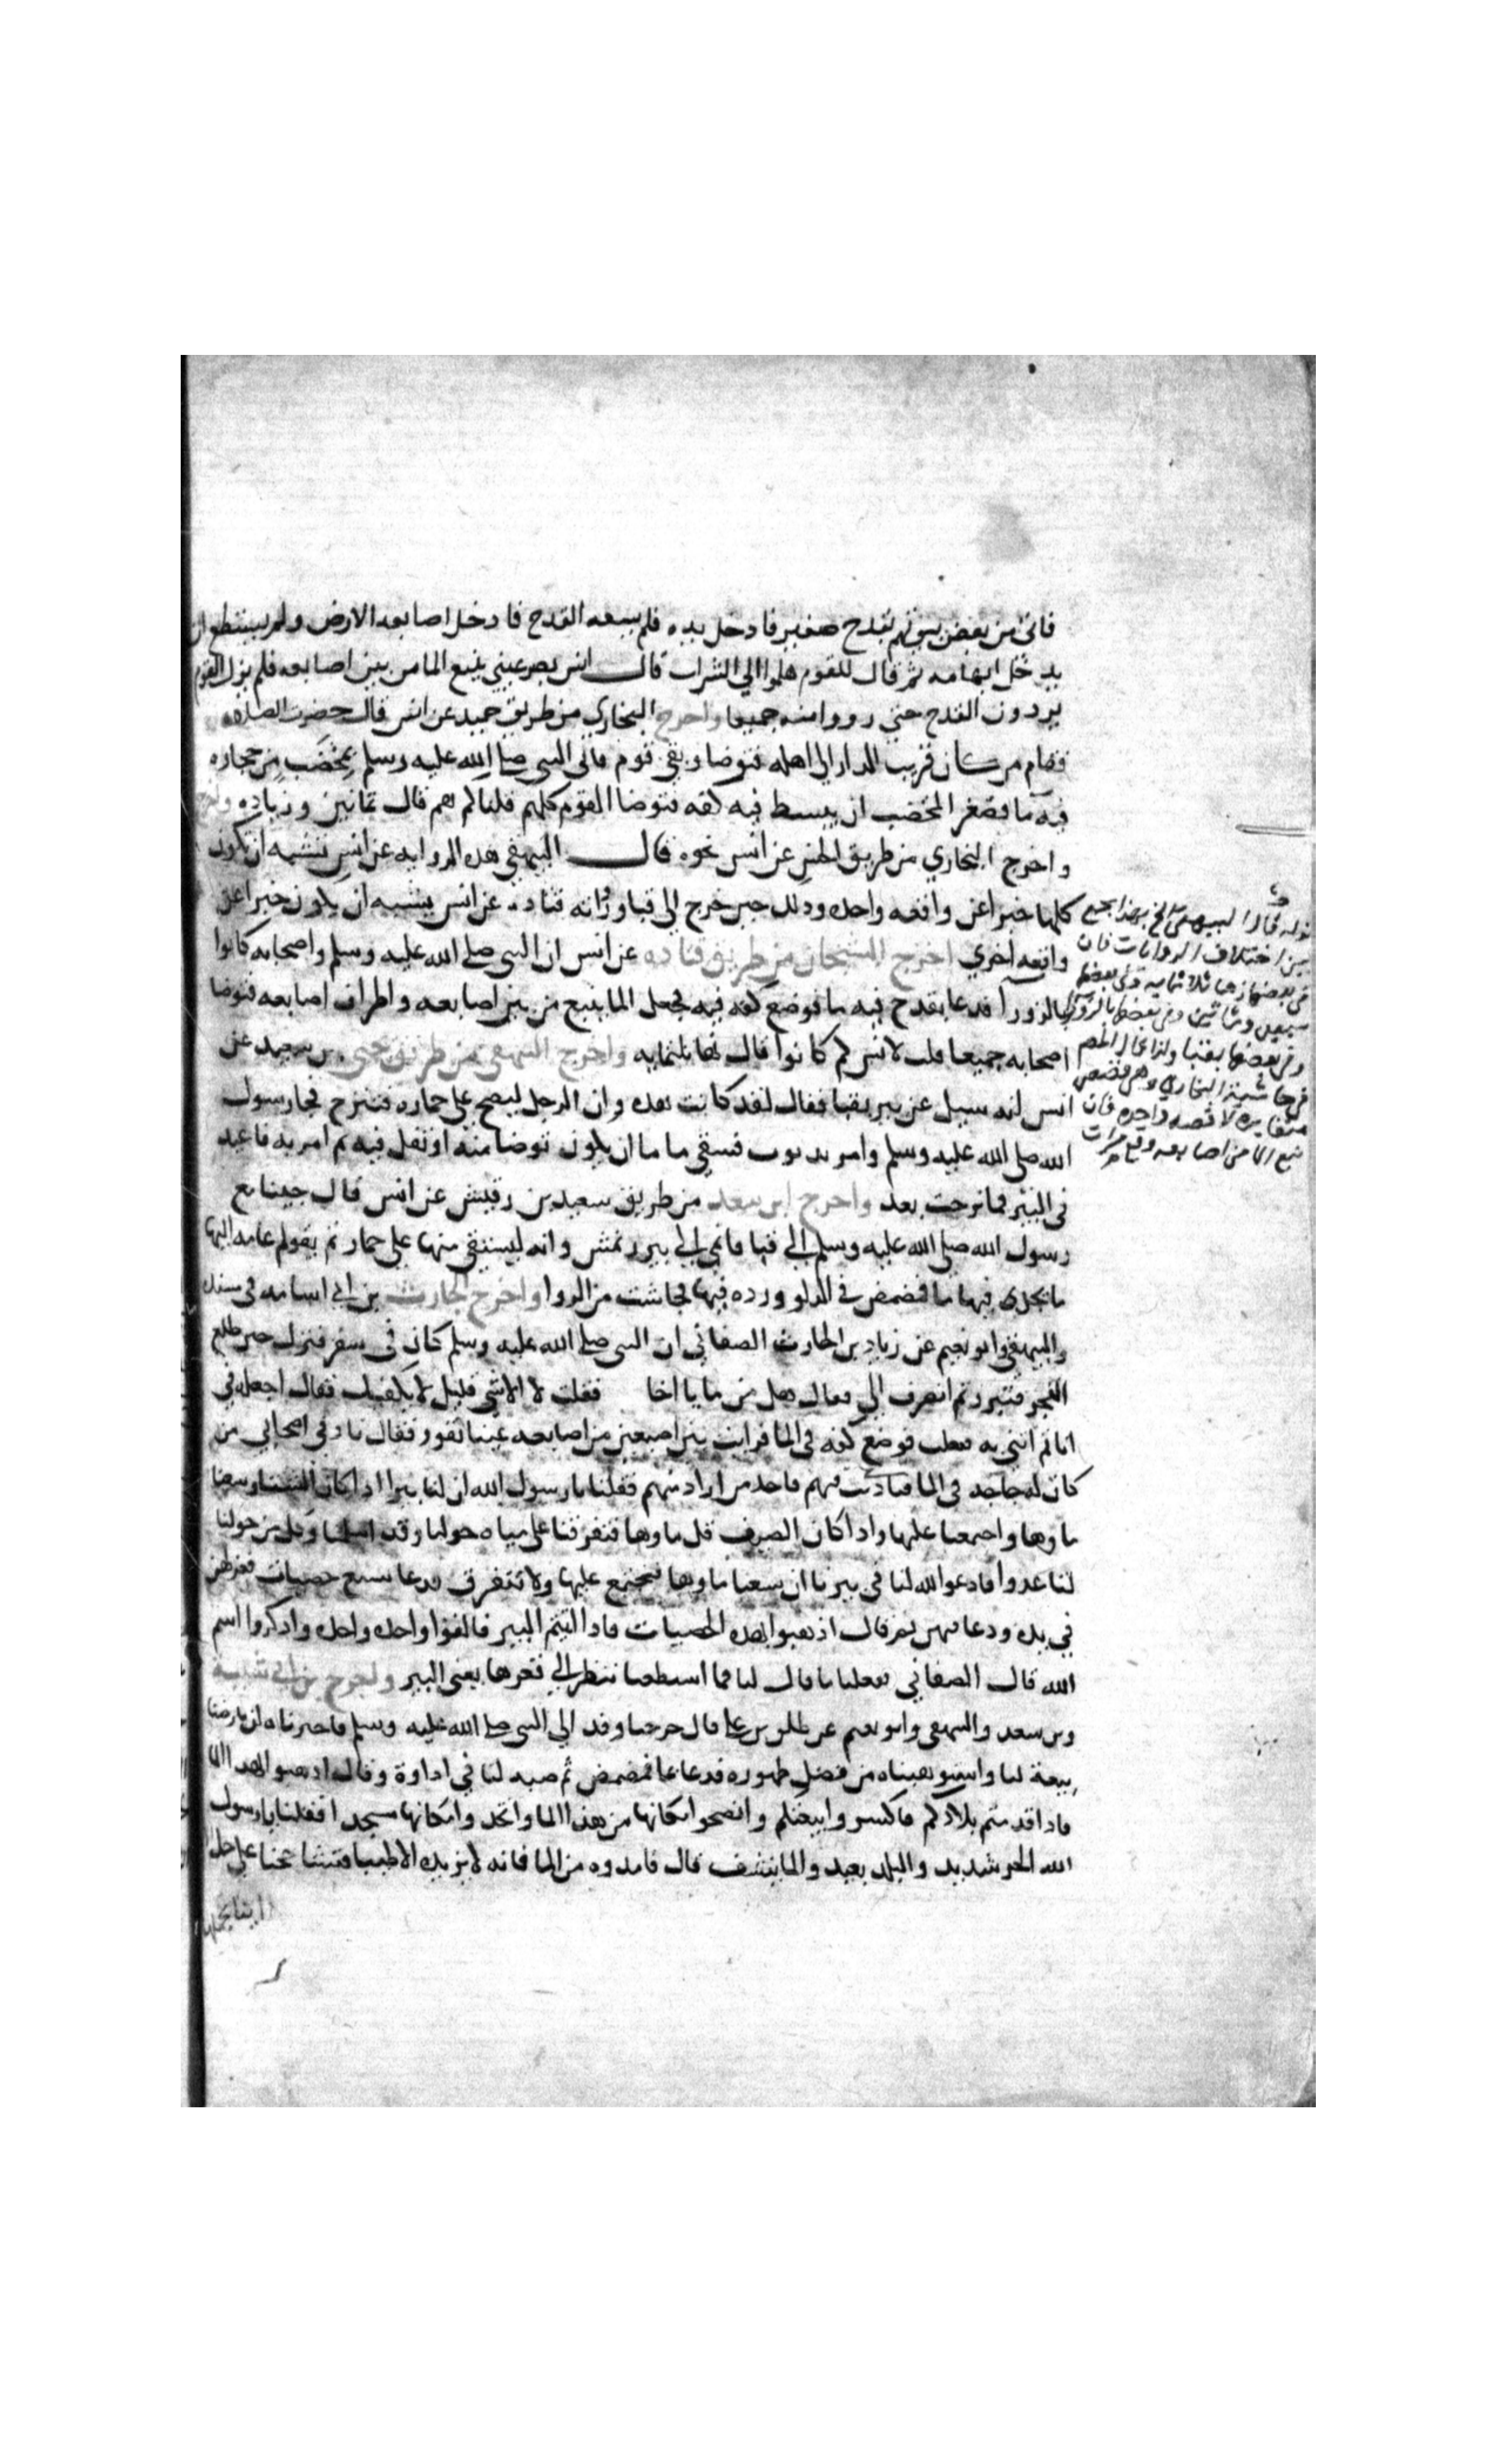 فاتى من بعض بيوتهم بقدح صغير فادخل يده فلم يسعه القدح فادخل اصابعه الاربع ولم يستطع ان
يدخل ابهامه ثم قال للقوم هلموا الى الشراب قال انس بصر عيني ينبع الما من بين اصابعه فلم يزل القوم
يردون القدح حتى رووا منه جميعا واخرج البخاري من طريق حميد عن انس قال حضرت الصلاه
فقام من كان قريب الدار الى اهله فتوضا وبقي قوم فاتى النبي صلى الله عليه وسلم بمخضب من حجاره
فيه ما فصغر المخضب ان يبسط فيه كفه فتوضا القوم كلهم قلنا كم هم قال ثمانين وزياده
واخرج البخاري من طريق الحسن عن انس نحوه قال البيهقي هذه الروايه عن انس تشبه ان تكون
كلها خبرا عن واقعه واحده وذلك حين خرج الى قبا ورواية قتاده عن انس يشبه ان يكون خبرا عن
واقعه اخري اخرج الشيخان من طريق قتاده عن انس ان النبي صلى الله عليه وسلم واصحابه كانوا
بالزورا فدعا بقدح فيه ما فوضع كفه فيه فجعل الما ينبع من بين اصابعه واطراف اصابعه فتوضا
اصحابه جميعا قلت لانس كم كانوا قال زها ثلثمايه واخرج البيهقي من طريق يحيى بن سعيد عن
انس انه سيل عن بير بقبا فقال لقد كانت هذه وان الرجل لينضح على حماره فتنزح فجا رسول
الله صلى الله عليه وسلم وامر بذنوب فسقي فاما ان يكون توضا منه او تفل فيه ثم امر به فاعيد
في البئر فما نزحت بعد واخرج ابن سعد من طريق سعيد بن رقيش عن انس قال جينا مع
رسول الله صلى الله عليه وسلم الى قبا فانتهى الى بير غرس وانه ليستقى منها على حمار ثم يقوم عامه النهار
ما نجد فيها ما فمضمض في الدلو ورده فيها فجاشت من الروا واخرج الحارث بن ابي اسامه في مسنده
والبيهقي وابو نعيم عن زياد بن الحارث الصدائي ان النبي صلى الله عليه وسلم كان في سفر فنزل حين طلع
الفجر فتبرز ثم انصرف الي فقال هل من ما يا اخا فقلت لا الا شي قليل لا يكفيك فقال اجعله في
انا ثم ائتني به ففعلت فوضع كفه في الما فرايت بين اصبعين من اصابعه عينا تفور فقال ناد في اصحابي من
كان له حاجه في الما فناديت فيهم فاخذ من اراد منهم فقلنا يا رسول الله ان لنا بيرا اذا كان الشتا وسعنا
ماوها واجتمعنا عليها واذا كان الصيف قل ماوها فتفرقنا على مياه حولنا وقد اسلمنا وكل من حولنا
لنا عدو فادعو الله لنا في بيرنا ان يسعنا ماوها فنجتمع عليها ولا نتفرق فدعا بسبع حصيات فعركهن
في يده ودعا فيهن ثم قال اذهبوا بهذه الحصيات فاذا اتيتم البير فالقوا واحده واحده واذكروا اسم
الله قال الصدائي ففعلنا ما قال لنا فما استطعنا ننظر الى قعرها يعني البير واخرج بن ابي شيبة
وبن سعد والبيهقي وابو نعيم عن طلق بن علي قال خرجنا وفد الى النبي صلى الله عليه وسلم فاخبرناه ان بارضنا
بيعة لنا واستوهبناه من فضل طهوره فدعا بما فمضمض ثم صبه لنا في اداوة وقال اذهبوا بهذا الما
فاذا قدمتم بلادكم فاكسروا بيعتكم وانضحوا مكانها من هذا الما واتخذوا مكانها مسجدا فقلنا يا رسول
الله الحر شديد والبلد بعيد والما ينشف قال فامدوه من الما فانه لا يزيده الا طيبا فتشاححنا على حمل
قوله قال البيهقي الخ بهذا يجمع
بين اختلاف الروايات فان
في بعضها زها ثلاثمايه وفي بعضها
سبعين وثمانين وفي بعضها بالزورا
وفي بعضها بقبا ولذا قال المص
في حاشية البخاري هي قصص
متغايره لا قصه واحده فان
نبع الما من اصابعه وقع مرات